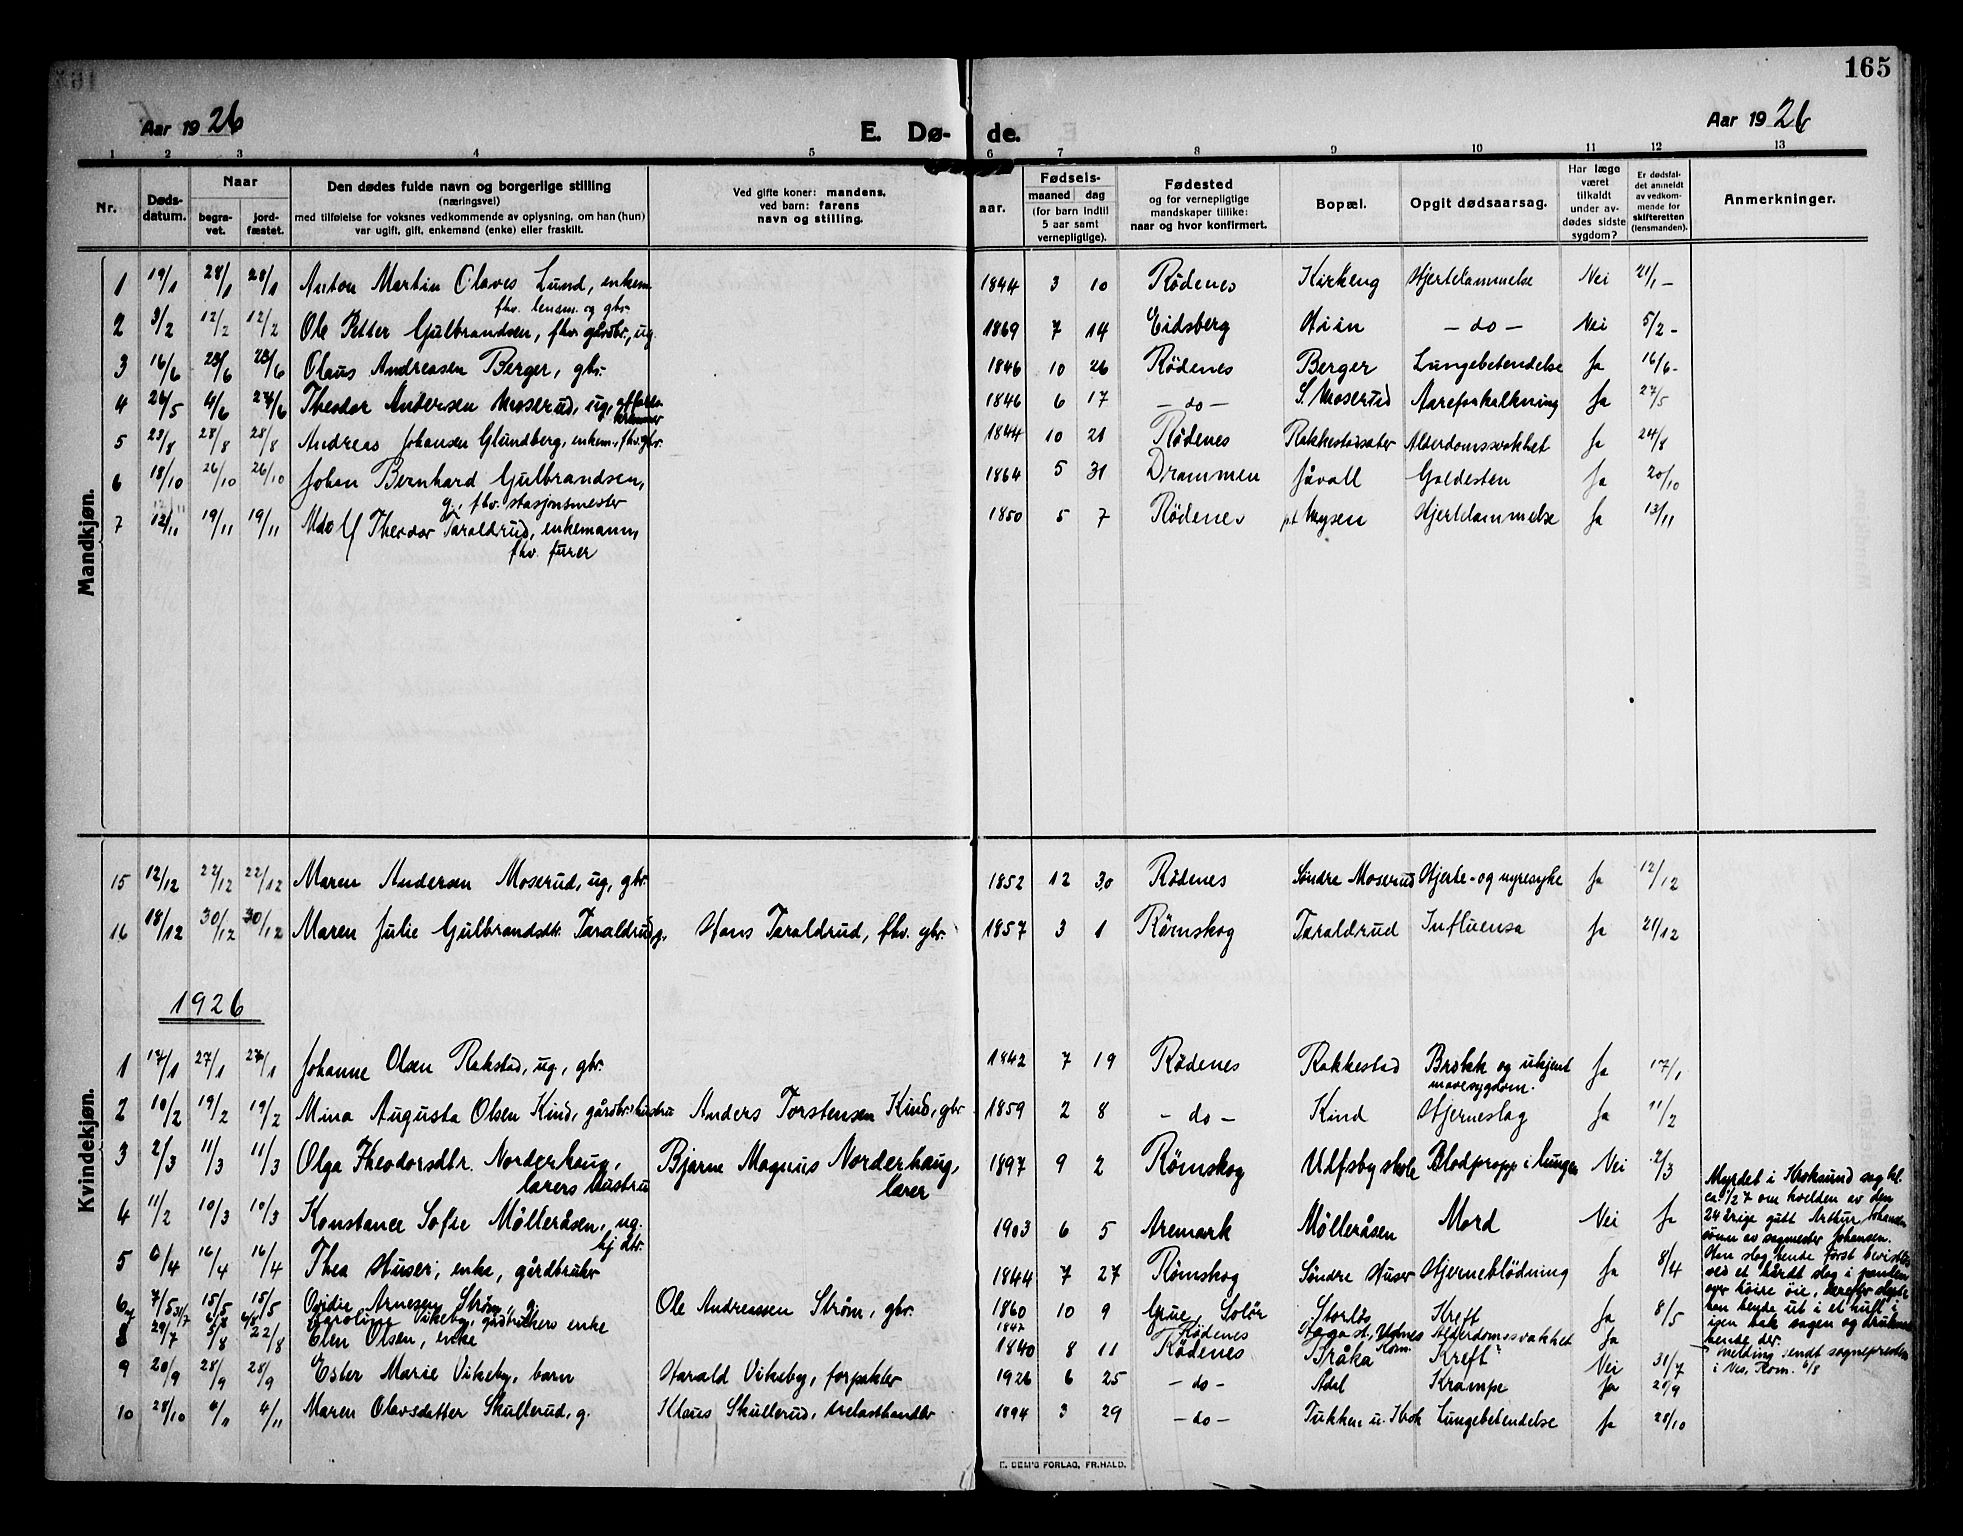 165
Aar 1926
E. Dø- de.
Aar 1926
1 2 3 4 5 6 7 8 9 10 11 12 13
Nr. Døds-datum. Naar begra-vet. jord-fæstet. Den dødes fulde navn og borgerlige stilling (næringsvei) med tilføielse for voksnes vedkommende av oplysning, om han (hun) var ugift, gift, enkemand (enke) eller fraskilt. Ved gifte koner: mandens, ved barn: farens navn og stilling. Fødsels- aar. maaned dag (for barn indtil 5 aar samt vernepligtige). Fødested og for vernepligtige mandskaper tillike: naar og hvor konfirmert. Bopæl. Opgit dødsaarsag. Har læge været tilkaldt under av-dødes sidste sygdom? Er dødsfal-det anmeldt av vedkom-mende for skifteretten (lensmanden). Anmerkninger.
Mandkjøn.
1 19/1 28/1 28/1 Anton Martin Olaves Lund, enkem. 1844 3 10 Rødenes Kirkeng Hjertelammelse Nei 21/1 –
fhv. lensm. og gbr.
2 3/2 12/2 12/2 Ole Petter Gulbrandsen, fhv. gårdbr., ug. 1869 7 14 Eidsberg Hiin – do – Nei 5/2 –
3 16/6 23/6 23/6 Olaus Andreasen Berger, gbr. 1846 10 26 Rødenes Berger Lungebetendelse Ja 16/6 –
4 26/5 4/6 Theodor Andersen Moserud, ug., 1846 6 17 – do – S. Moserud Aareforkalkning Ja 27/5
5 23/8 28/8 28/8 Andreas Johansen Glundberg, enkem., fhv. gbr. 1844 10 21 Rødenes Alderdomssvakhet Ja 24/8
6 18/10 26/10 26/10 Johan Bernhard Gulbrandsen, 1864 5 31 Drammen Jåvall Galdesten Ja 20/10
g., fhv. stasjonsmester
7 12/11 19/11 19/11 Adolf Theodor Taraldrud, enkemann, 1850 5 7 Rødenes p.t. Mysen Hjertelammelse Ja 13/11
fhv. furer
Kvindekjøn.
15 12/12 22/12 22/12 Maren Andersen Moserud, ug., gbr. 1852 12 30 Rødenes Søndre Moserud Hjerte- og nyresyke Ja 12/12
16 18/12 30/12 30/12 Maren Julie Gulbrandsdtr. Taraldrud, g. Hans Taraldrud, fhv. gbr. 1857 3 1 Rømskog Taraldrud Influensa Ja 21/12
1926
1 17/1 27/1 27/1 Johanne Olsen Rakstad, ug., gbr. 1842 7 19 Rødenes Rakkestad Brokk og ukjent Ja 17/1
mavesygdom.
2 10/2 19/2 19/2 Mina Augusta Olsen Kind, gårdbr. hustru Anders Torstensen Kind, gbr. 1859 2 8 – do – Kind Hjerneslag Ja 11/2
3 2/3 11/3 11/3 Olga Theodorsdtr. Norderhaug, Bjarne Magnus Norderhaug, 1897 9 2 Rømskog Ulfsby skole Blodpropp i lungen Nei 2/3
lærers hustru lærer
4 11/2 10/3 10/3 Konstance Sofie Mølleråsen, ug. 1903 6 5 Aremark Mølleråsen Mord Nei Ja
hj. dtr.
5 6/4 16/4 16/4 Thea Huser, enke, gårdbruker 1844 7 27 Rømskog Søndre Huser Hjerneblødning Ja 8/4
6 7/5 15/5 15/5 Ovidie Arnesen Strøm, g. Ole Andreassen Strøm, gbr. 1860 10 9 Grue, Solør Storløs Kreft Ja 8/5
7 31/7 6/8 6/8 Karoline Vikeby, gårdbrukers enke 1847 Rødenes Alderdomssvakhet Ja
8 29/7 5/8 22/8 Elen Olsen, enke 1840 8 11 Rødenes Bråka Kreft Nei 31/7
9 20/9 28/9 28/9 Ester Marie Vikeby, barn Harald Vikeby, forpakter 1926 6 25 – do – Adel Krampe Ja 21/9
10 28/10 4/11 4/11 Maren Olavsdatter Skullerud, g. Klaus Skullerud, trelasthandler 1894 3 29 – do – Lungebetendelse Ja 28/10
Myrdet i Kroksund sag kl.
ca. 1/2 7 om kvelden av den
24 årige gutt Arthur Johansen
sønn av sagmester Johansen.
Han slog hende først bevistløs
ved et hårdt slag i panden
over høire øie, derefter slæpte
han hende ut i et hull i
igen bak sagen og druknet
hende der.
Melding sendt sognepresten
i Nes, Rom. 6/8
E. SEM'S FORLAG, FR.HALD.